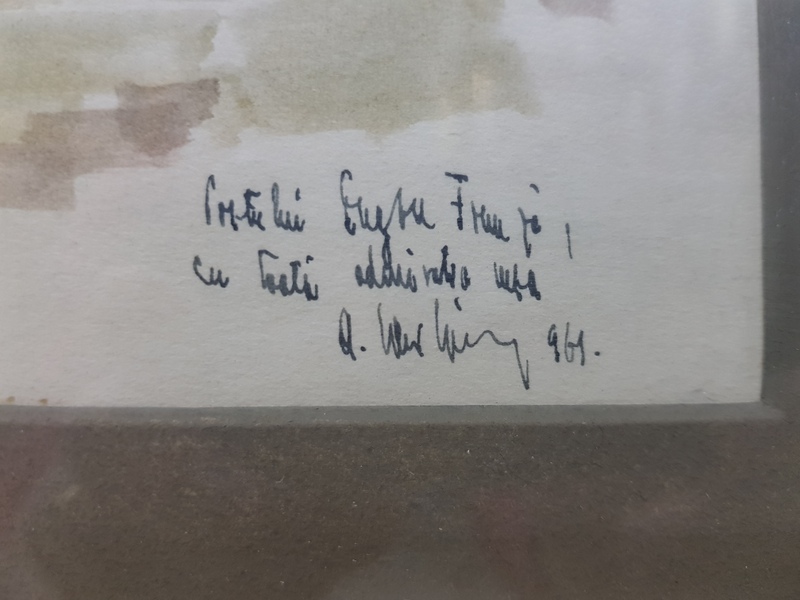 Poetului Eugen Frunză,
cu toată admirația mea
A. 961.